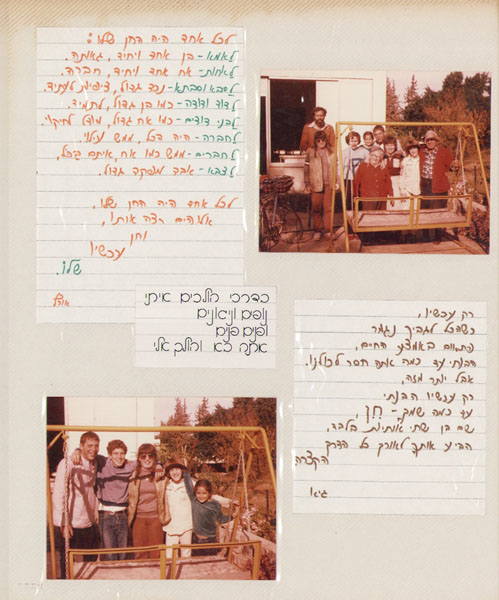 לכל אחד היה החן שלו:
לאמא - בן אחד ויחיד, גאותה.
לאחות - אח אחד ויחיד, חברה.
לסבא וסבתא - נכד גדול, ציפיות לעתיד.
לדוד ודודה - כמו בן גדול, לתמיד.
לבני דודים - כמו אח גדול, מודל לחיקוי.
לחברה - היה הכל, ממש עילוי
לחברים - ממש כמו אח, איתם בכל,
לצבא - אבד מפקד גדול.
לכל אחד היה החן שלו,
אלוהים רצה אותו,
וחן
עכשיו
שלו.
כדרכי הולכים איתי
נופים וניגונים
ופנים פנים
אתה בא והולך אלי
רק עכשיו,
כשהכל לגביך נגמר
פתאום באמצע החיים,
הבנתי עד כמה אתה חסר לכולנו.
אבל יותר מזה,
רק עכשיו הבנתי
עד כמה שמך - חן,
שם בן שתי אותיות בלבד,
הביע אותך לאורך כל הדרך
הקצרה